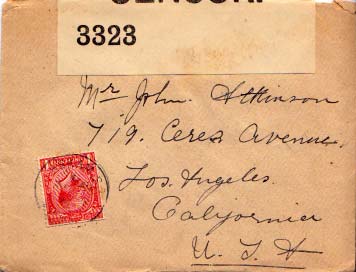 CENSOR.
3323
Mr John. Atkinson
719. Ceres Avenue.
Los Angeles.
California
U. S. A